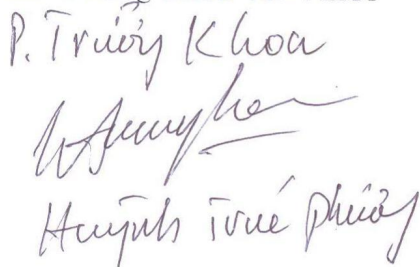 P. Trưởng Khoa
Huỳnh Trúc Phương